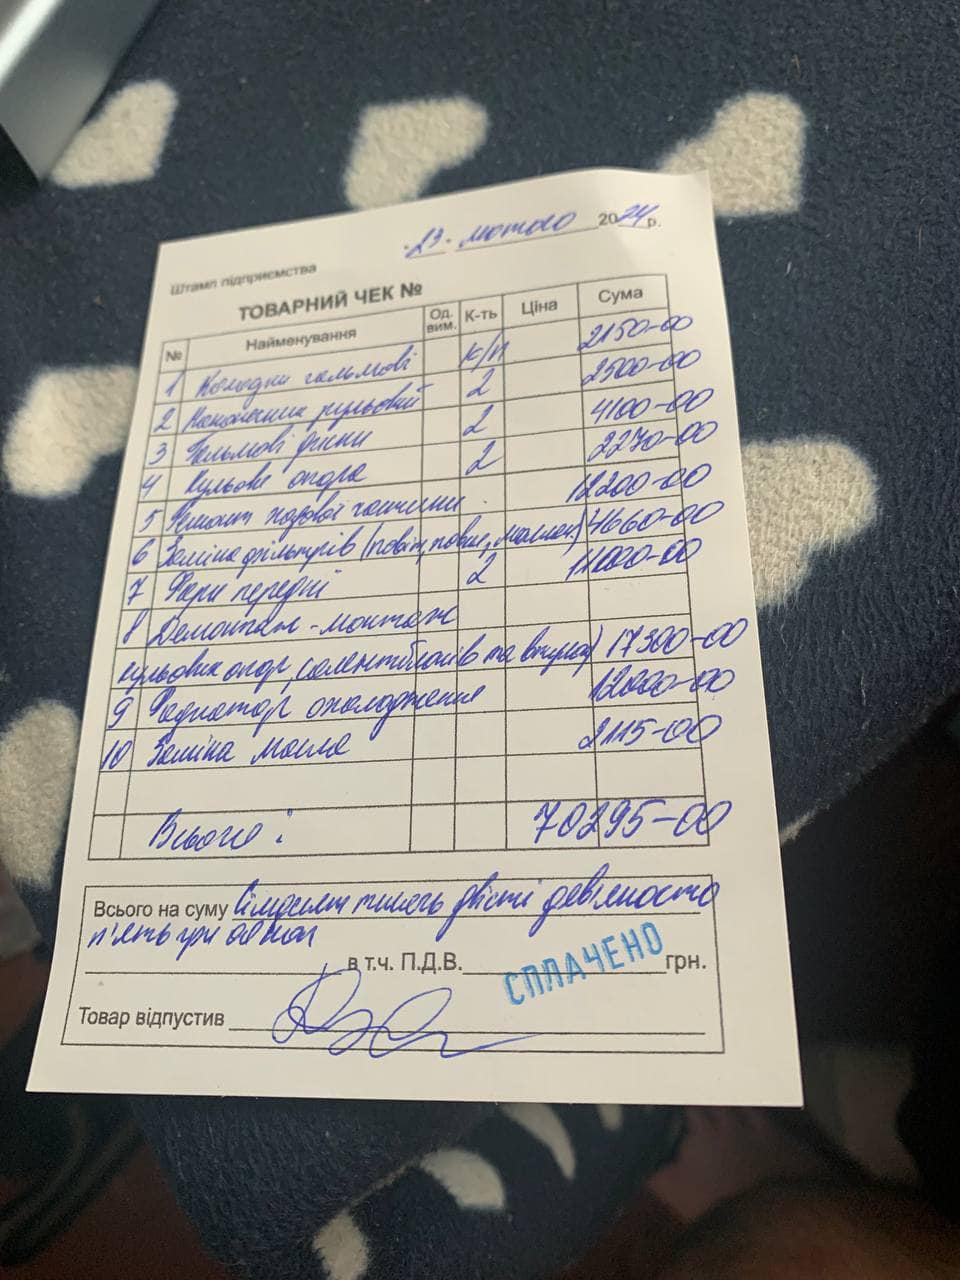 23 лютого 2024 р.
Штамп підприємства
ТОВАРНИЙ ЧЕК №
№ Найменування Од. вим. К-ть Ціна Сума
1 Колодки гальмові к/п 2150-00
2 Наконечник рульовий 2 2500-00
3 Гальмові диски 2 4100-00
4 Кульове опора 2 2270-00
5 Ремонт ходової частини 12200-00
6 Заміна фільтрів (повіт, повне, маслян.) 4660-00
7 Фари передні 2 11000-00
8 Демонтаж-монтаж
кульових опор, салентблоків та втулок) 17300-00
9 Радіатор охолодження 12000-00
10 Заміна масла 2115-00
Всього: 70295-00
Всього на суму Сімдесят тисяч двісті дев'яносто
п'ять грн 00 коп
в т.ч. П.Д.В. СПЛАЧЕНО грн.
Товар відпустив